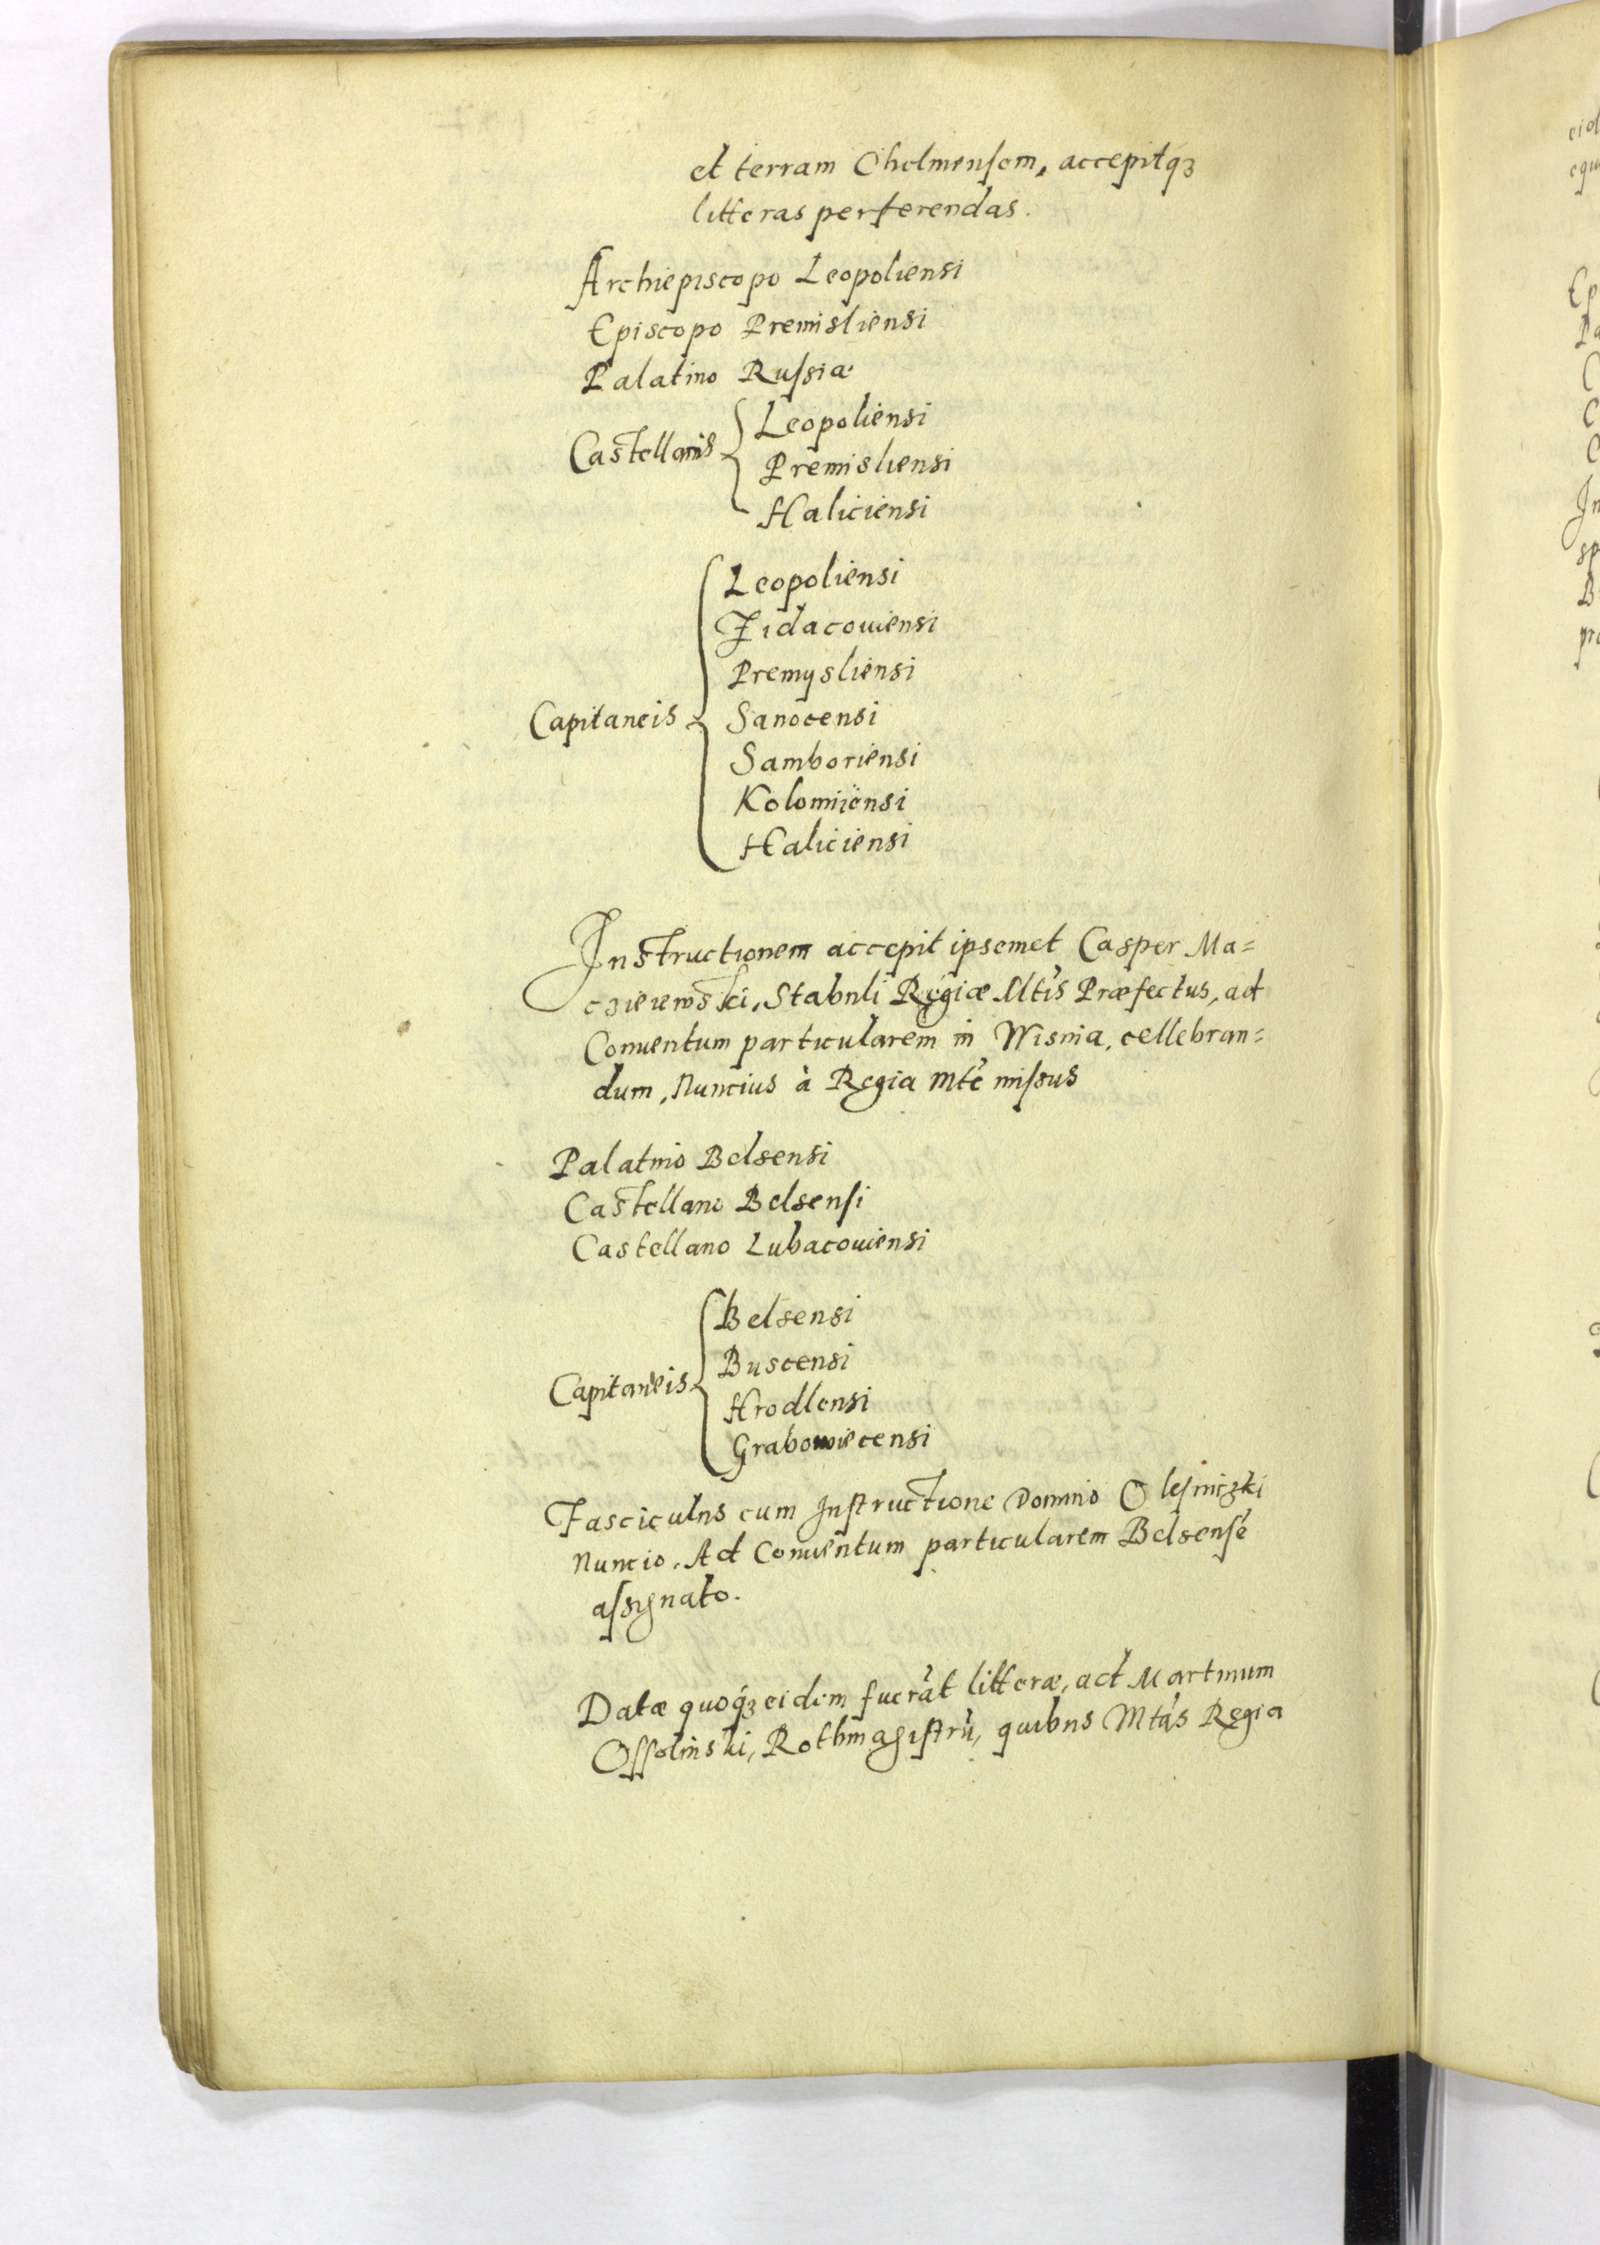 et terram Chelmensem, accepitqȝ
litteras perferendas.
Archiepiscopo Leopoliensi
Episcopo Premisliensi
Palatino Russiæ
Castellanis
Leopoliensi
Premisliensi
Haliciensi
Capitaneis
Leopoliensi
Zidacouiensi
Premysliensi
Sanocensi
Samboriensi
Kolomiiensi
Haliciensi
Instructionem accepit ipsemet Casper Ma=
czieiewski, Stabuli Regiæ Mtis Præfectus, ad
Conuentum particularem in Wisnia, cellebran=
dum, Nuncius à Regia Mte missus
Palatino Belsensi
Castellano Belsensi
Castellano Lubacouiensi
Capitaneis
Belsensi
Buscensi
Hrodlensi
Grabowiecensi
Fasciculus cum Instructione Domino Olesniczki
Nuncio. Ad Conuentum particularem Belsensē
assignato.
Datæ quoqȝ eidem fuerāt litteræ, ad Martinum
Ossolinski, Rothmagistrū, quibus Mtas Regia